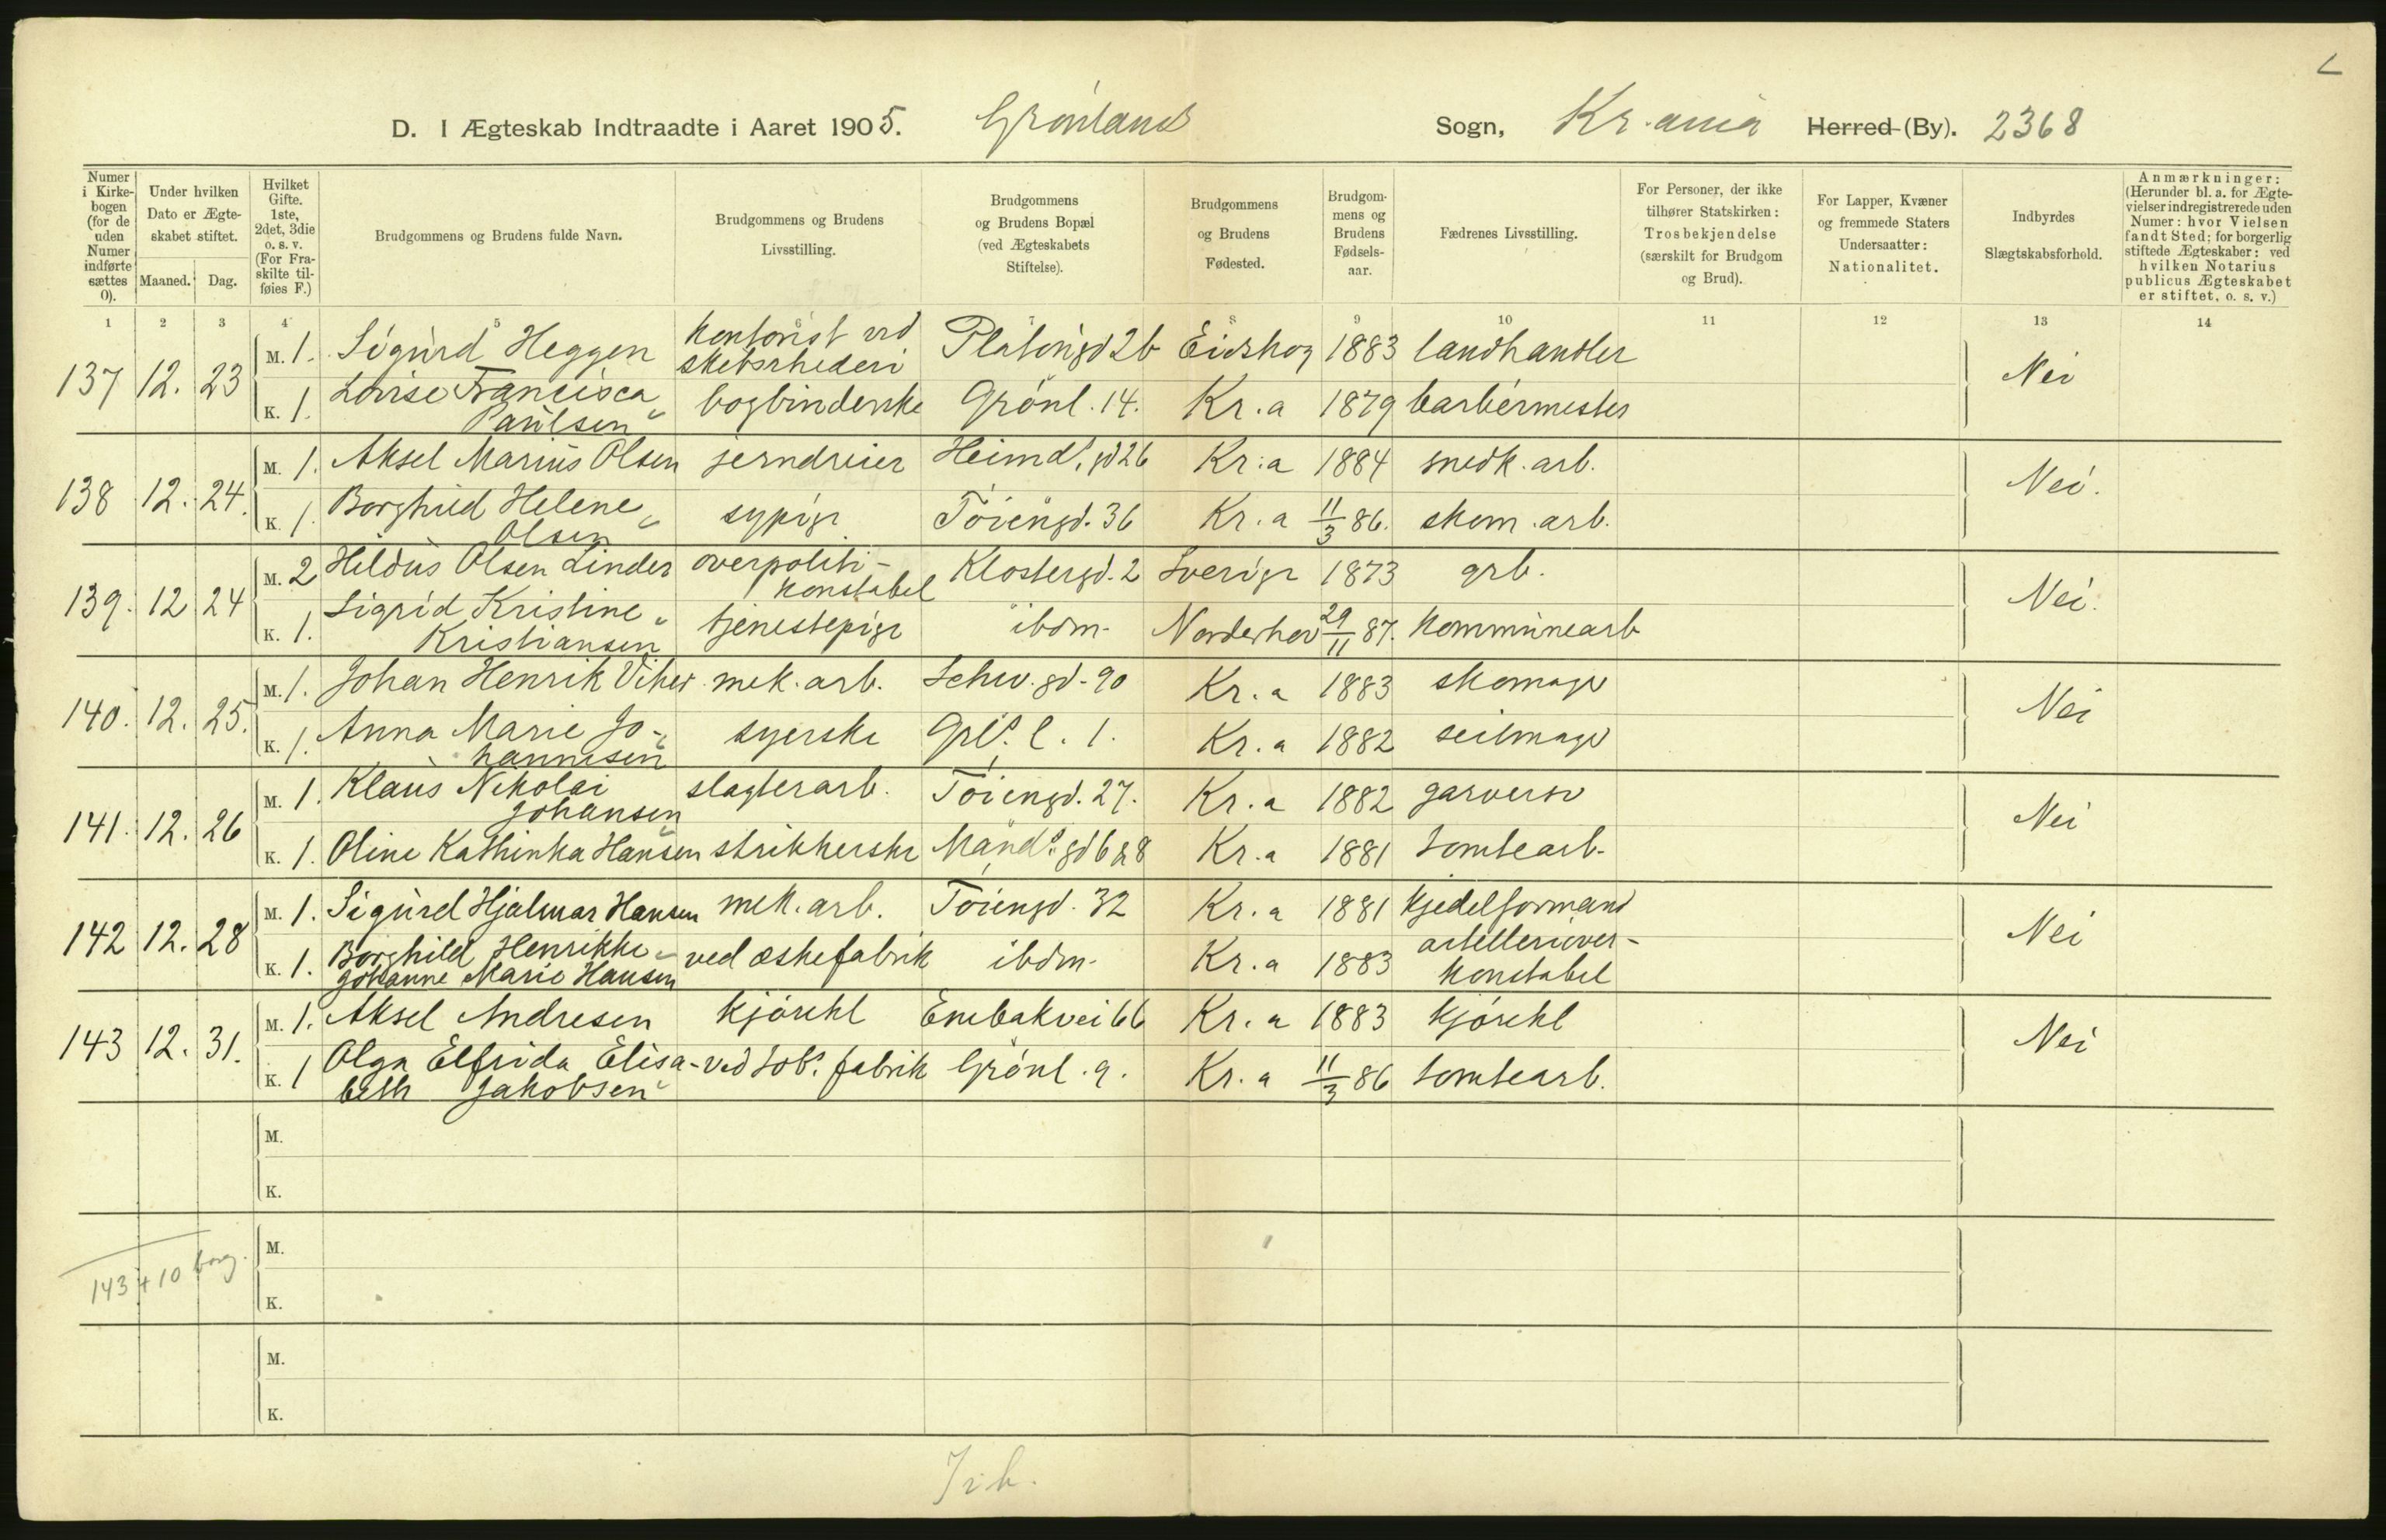 D. I Ægteskab Indtraadte i Aaret 1905. Grønlands Sogn, Kr.ania Herred (By). 2368
Numer i Kirkebogen (for de uden Numer indførte sættes 0).
Under hvilken Dato er Ægteskabet stiftet.
Maaned. Dag.
Hvilket Gifte. 1ste, 2det, 3die o. s. v. (For Fraskilte tilføies F.)
Brudgommens og Brudens fulde Navn.
Brudgommens og Brudens Livsstilling.
Brudgommens og Brudens Bopæl (ved Ægteskabets Stiftelse).
Brudgommens og Brudens Fødested.
Brudgommens og Brudens Fødselsaar.
Fædrenes Livsstilling.
For Personer, der ikke tilhører Statskirken: Trosbekjendelse (særskilt for Brudgom og Brud).
For Lapper, Kvæner og fremmede Staters Undersaatter: Nationalitet.
Indbyrdes Slægtskabsforhold.
Anmærkninger: (Herunder bl. a. for Ægtevielser indregistrerede uden Numer: hvor Vielsen fandt Sted; for borgerlig stiftede Ægteskaber: ved hvilken Notarius publicus Ægteskabet er stiftet, o. s. v.)
1 2 3 4 5 6 7 8 9 10 11 12 13 14
137 12. 23 M. 1. Sigurd Heggen kontorist ved skibsrhederi Platousgd 2b Eidskog 1883 landhandler Nei
K. 1. Lovise Francisca Paulsen bogbinderske Grønl. 14. Kr.a 1879 barbermester
138 12. 24. M. 1. Aksel Marius Olsen jerndreier Heimd. gd 26 Kr.a 1884 snedk. arb. Nei.
K. 1. Borghild Helene Olsen sypige Tøiengd. 36 Kr.a 11/3 86. skom. arb.
139. 12 24 M. 2 Hildus Olsen Linder overpolitikonstabel Klostergd. 2 Sverige 1873 grb. Nei.
K. 1. Sigrid Kristine Kristiansen tjenestepige ibdm. Norderhov 29/11 87. kommunearb
140. 12. 25. M. 1. Johan Henrik Viker mek. arb. Schw. gd. 90 Kr.a 1883 skomager Nei
K. 1. Anna Marie Johannesen syerske Grl. l. 1. Kr.a 1882 seilmager
141. 12. 26 M. 1. Klaus Nikolai Johansen slagterarb. Tøiengd. 27. Kr.a 1882 garversv Nei
K. 1. Oline Kathinka Hansen strikkerske Mandls gd 6 & 8 Kr.a 1881 tomtearb.
142 12. 28 M. 1. Sigurd Hjalmar Hansen mek. arb. Tøiengd. 32 Kr.a 1881 kjedelformand Nei
K. 1. Borghild Henrikke Johanne Marie Hansen ved æskefabrik ibdm. Kr.a 1883 artilleriover-konstabel
143 12. 31. M. 1. Aksel Andresen kjørekl Enebakvei 66 Kr.a 1883 kjørekl Nei
K. 1 Olga Elfrida Elisabeth Jakobsen ved tob. fabrik Grønl. 9. Kr.a 11/3 86 tomtearb.
M.
K.
143 + 10 borg.
M.
K.
M.
K.